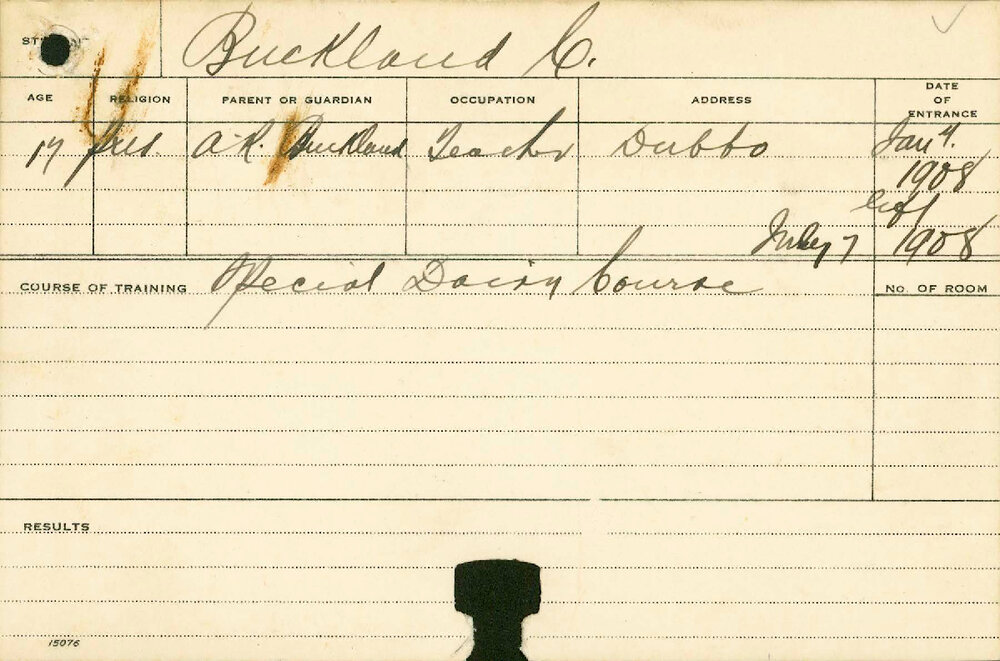 STUDENT Buckland C.
AGE RELIGION PARENT OR GUARDIAN OCCUPATION ADDRESS DATE OF ENTRANCE
17 Pres. A. R. Buckland Teacher Dubbo Jan 4.
1908
left
July 7 1908
COURSE OF TRAINING Special Dairy Course No. OF ROOM
RESULTS
15076